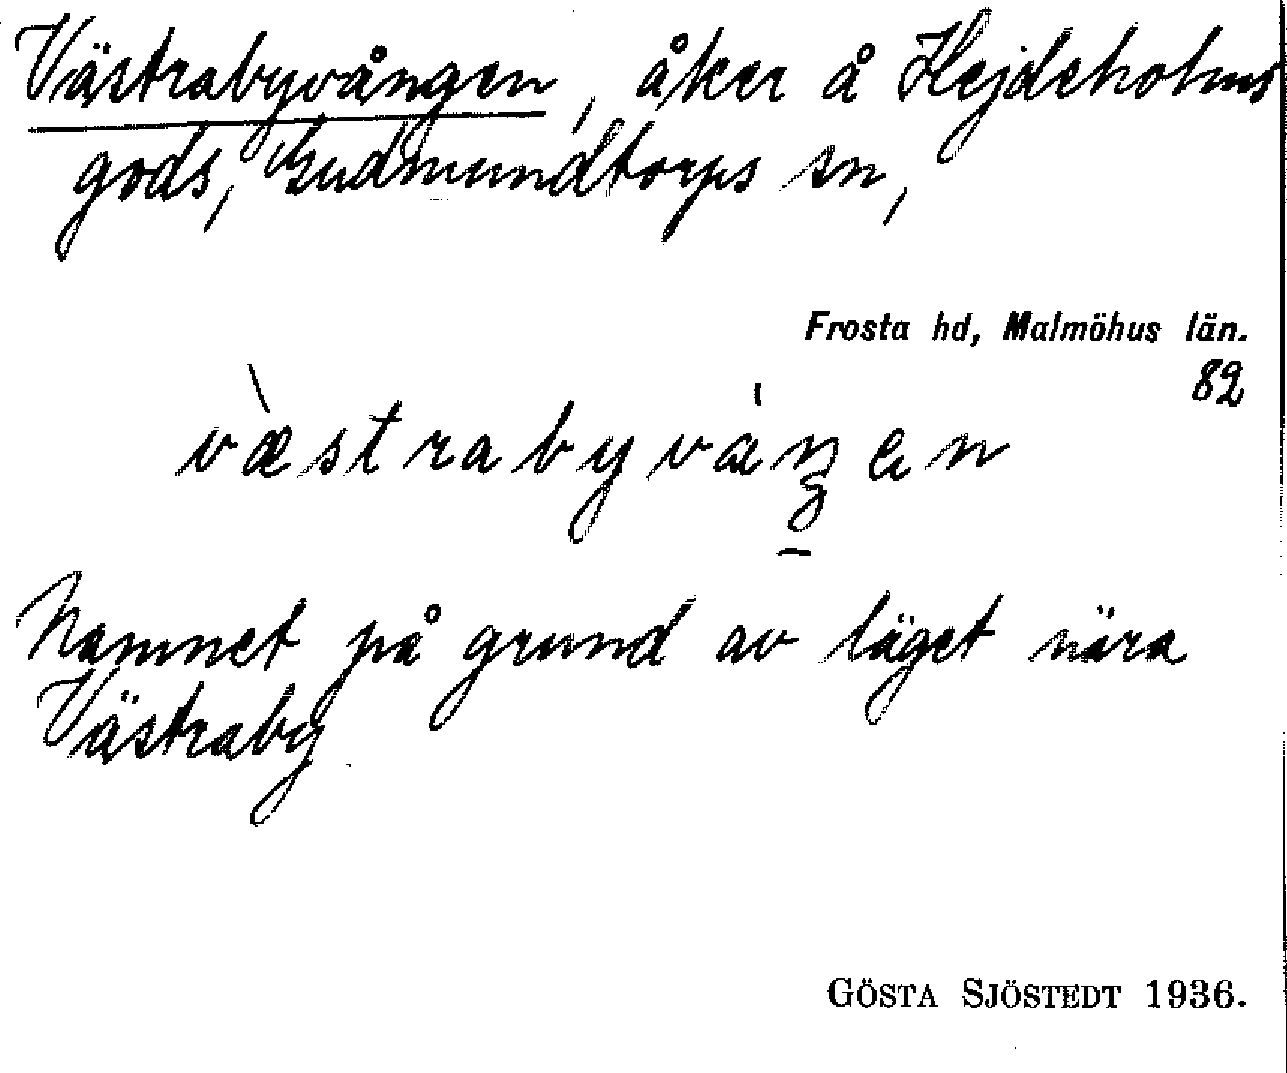 Västrabyvången, åker å Hejdeholms
gods, Gudmundtorps sn,
Frosta hd, Malmöhus län.
82
Namnet på grund av läget nära
Västraby
GÖSTA SJÖSTEDT 1936.